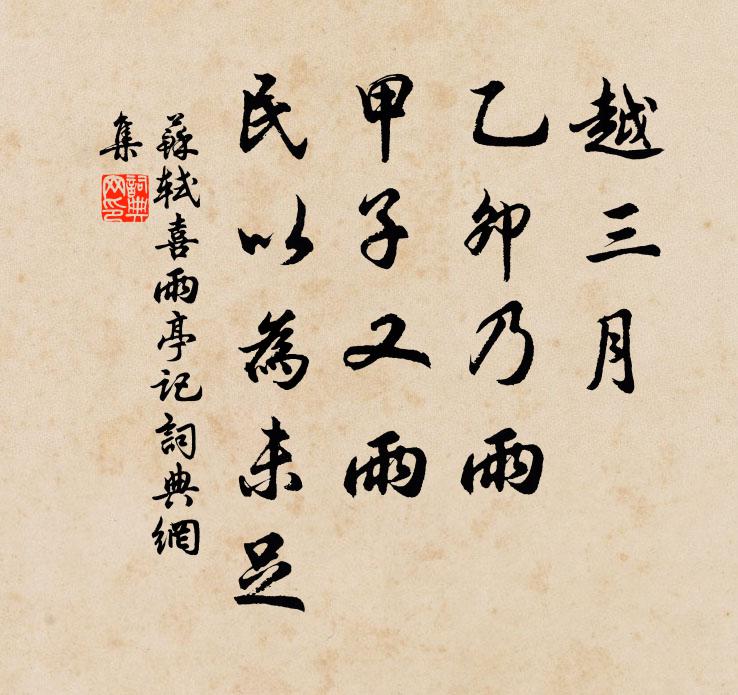 越三月
乙卯乃雨
甲子又雨
民以為未足
蘇軾喜雨亭記詞典網
集
詞典
网印